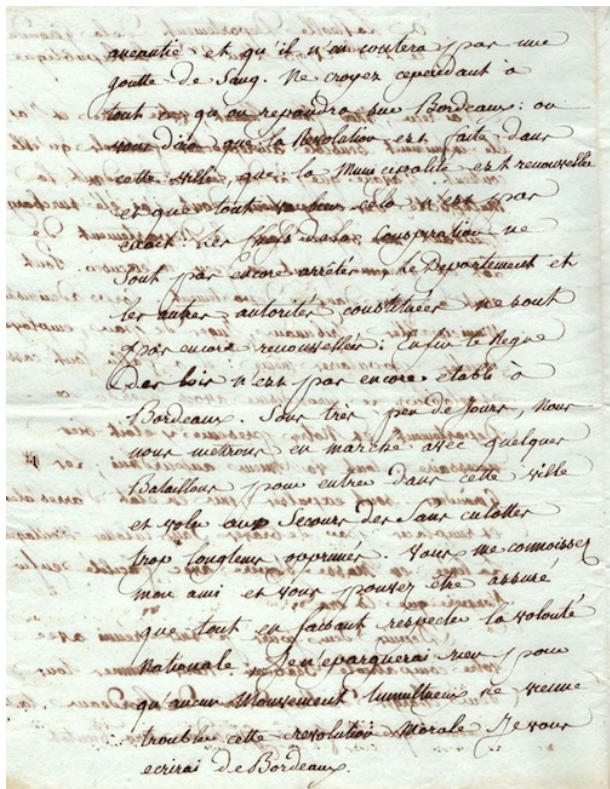 aneantie et qu'il n'en coutera pas une
goutte de Sang. Ne croyez cependant à
tout ce qu'on repandra sur Bordeaux : on
vous dira que la Revolution est faite dans
cette ville, que la Municipalité est renouvellée
et que tout va bien cela n'est pas
exact Les Chefs de la Conspiration ne
Sont pas encore arrêtés, Le Departement et
les autres autorités constituées ne sont
pas encore renouvellées : Enfin le Regne
Des lois n'est pas encore établi à
Bordeaux. Sous très peu de Jours, Nous
nous metrons en marche avec quelques
Bataillons pour entrer dans cette ville
et voler aux Secours des Sans culottes
trop longtems opprimés. Vous me connoissez
mon ami et vous pouvez être assuré
que tout en faisant respecter la volonté
Nationale Je n'épargnerai rien pour
qu'aucun Mouvement tumultueux ne vienne
troubler cette revolution Morale Je vous
ecrirai de Bordeaux.